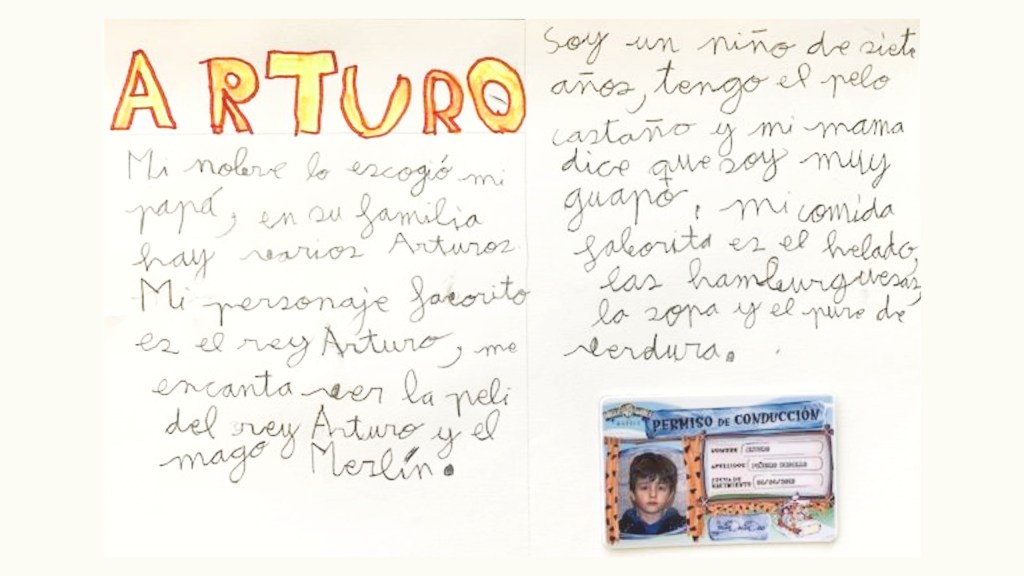 ARTURO
Mi nobre lo escogió mi
papá, en su familia
hay varios Arturos.
Mi personaje favorito
es el rey Arturo, me
encanta ver la peli
del rey Arturo y el
mago Merlín.
Soy un niño de siete
años, tengo el pelo
castaño y mi mama
dice que soy muy
guapo, mi comida
faborita es el helado,
las hamburguesas,
la sopa y el pure de
verdura.
PERMISO DE CONDUCCIÓN
NOMBRE ARTURO
APELLIDOS
FECHA DE
NACIMIENTO